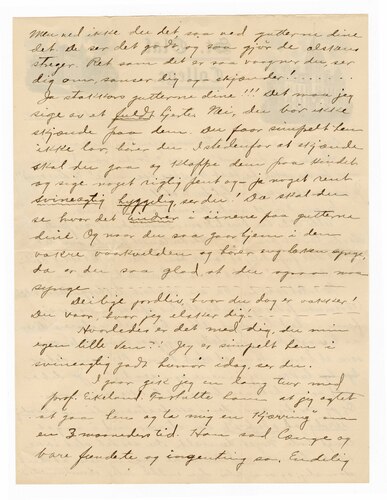 Men ved ikke du det saa ved gutterne dine
det, de ser det godt, og saa gjør de alskens
streger. Ret som det er saa vaagner du, ser
dig om, sanser dig og skjænder!
Ja stakkars gutterne dine!!! Det maa jeg
sige av et fuldt hjerte. Nei, du bør ikke
skjænde paa dem. Du faar simpelthen
ikke lov, hører du. Istedenfor at skjænde
skal du gaa og klappe dem paa kindet
og sige noget rigtig pent og – ja noget rent
svineagtig hyggelig, ser du! Da skal du
se hvor det i øinene paa gutterne
dine! Og naar du saa gaar hjem i den
vakre vaarkvelden og hører fuglene synge,
da er du saa glad at du ogsaa maa
synge
Deilige fordliv, hvor du dog er vakker!
Du vaar, hvor jeg elsker dig.
Hvorledes er det med dig, du min
egen lille ven?! Jeg er simpelthen i
svineagtig godt humør idag, ser du.
Igaar gik jeg en lang tur med
prof. Ekeland. Fortalte ham at jeg agtet
at gaa hen og ta mig en "Kjærring" om
en 3 maaneders tid. Han sad længe og
bare fundete og ingenting sa. Endelig